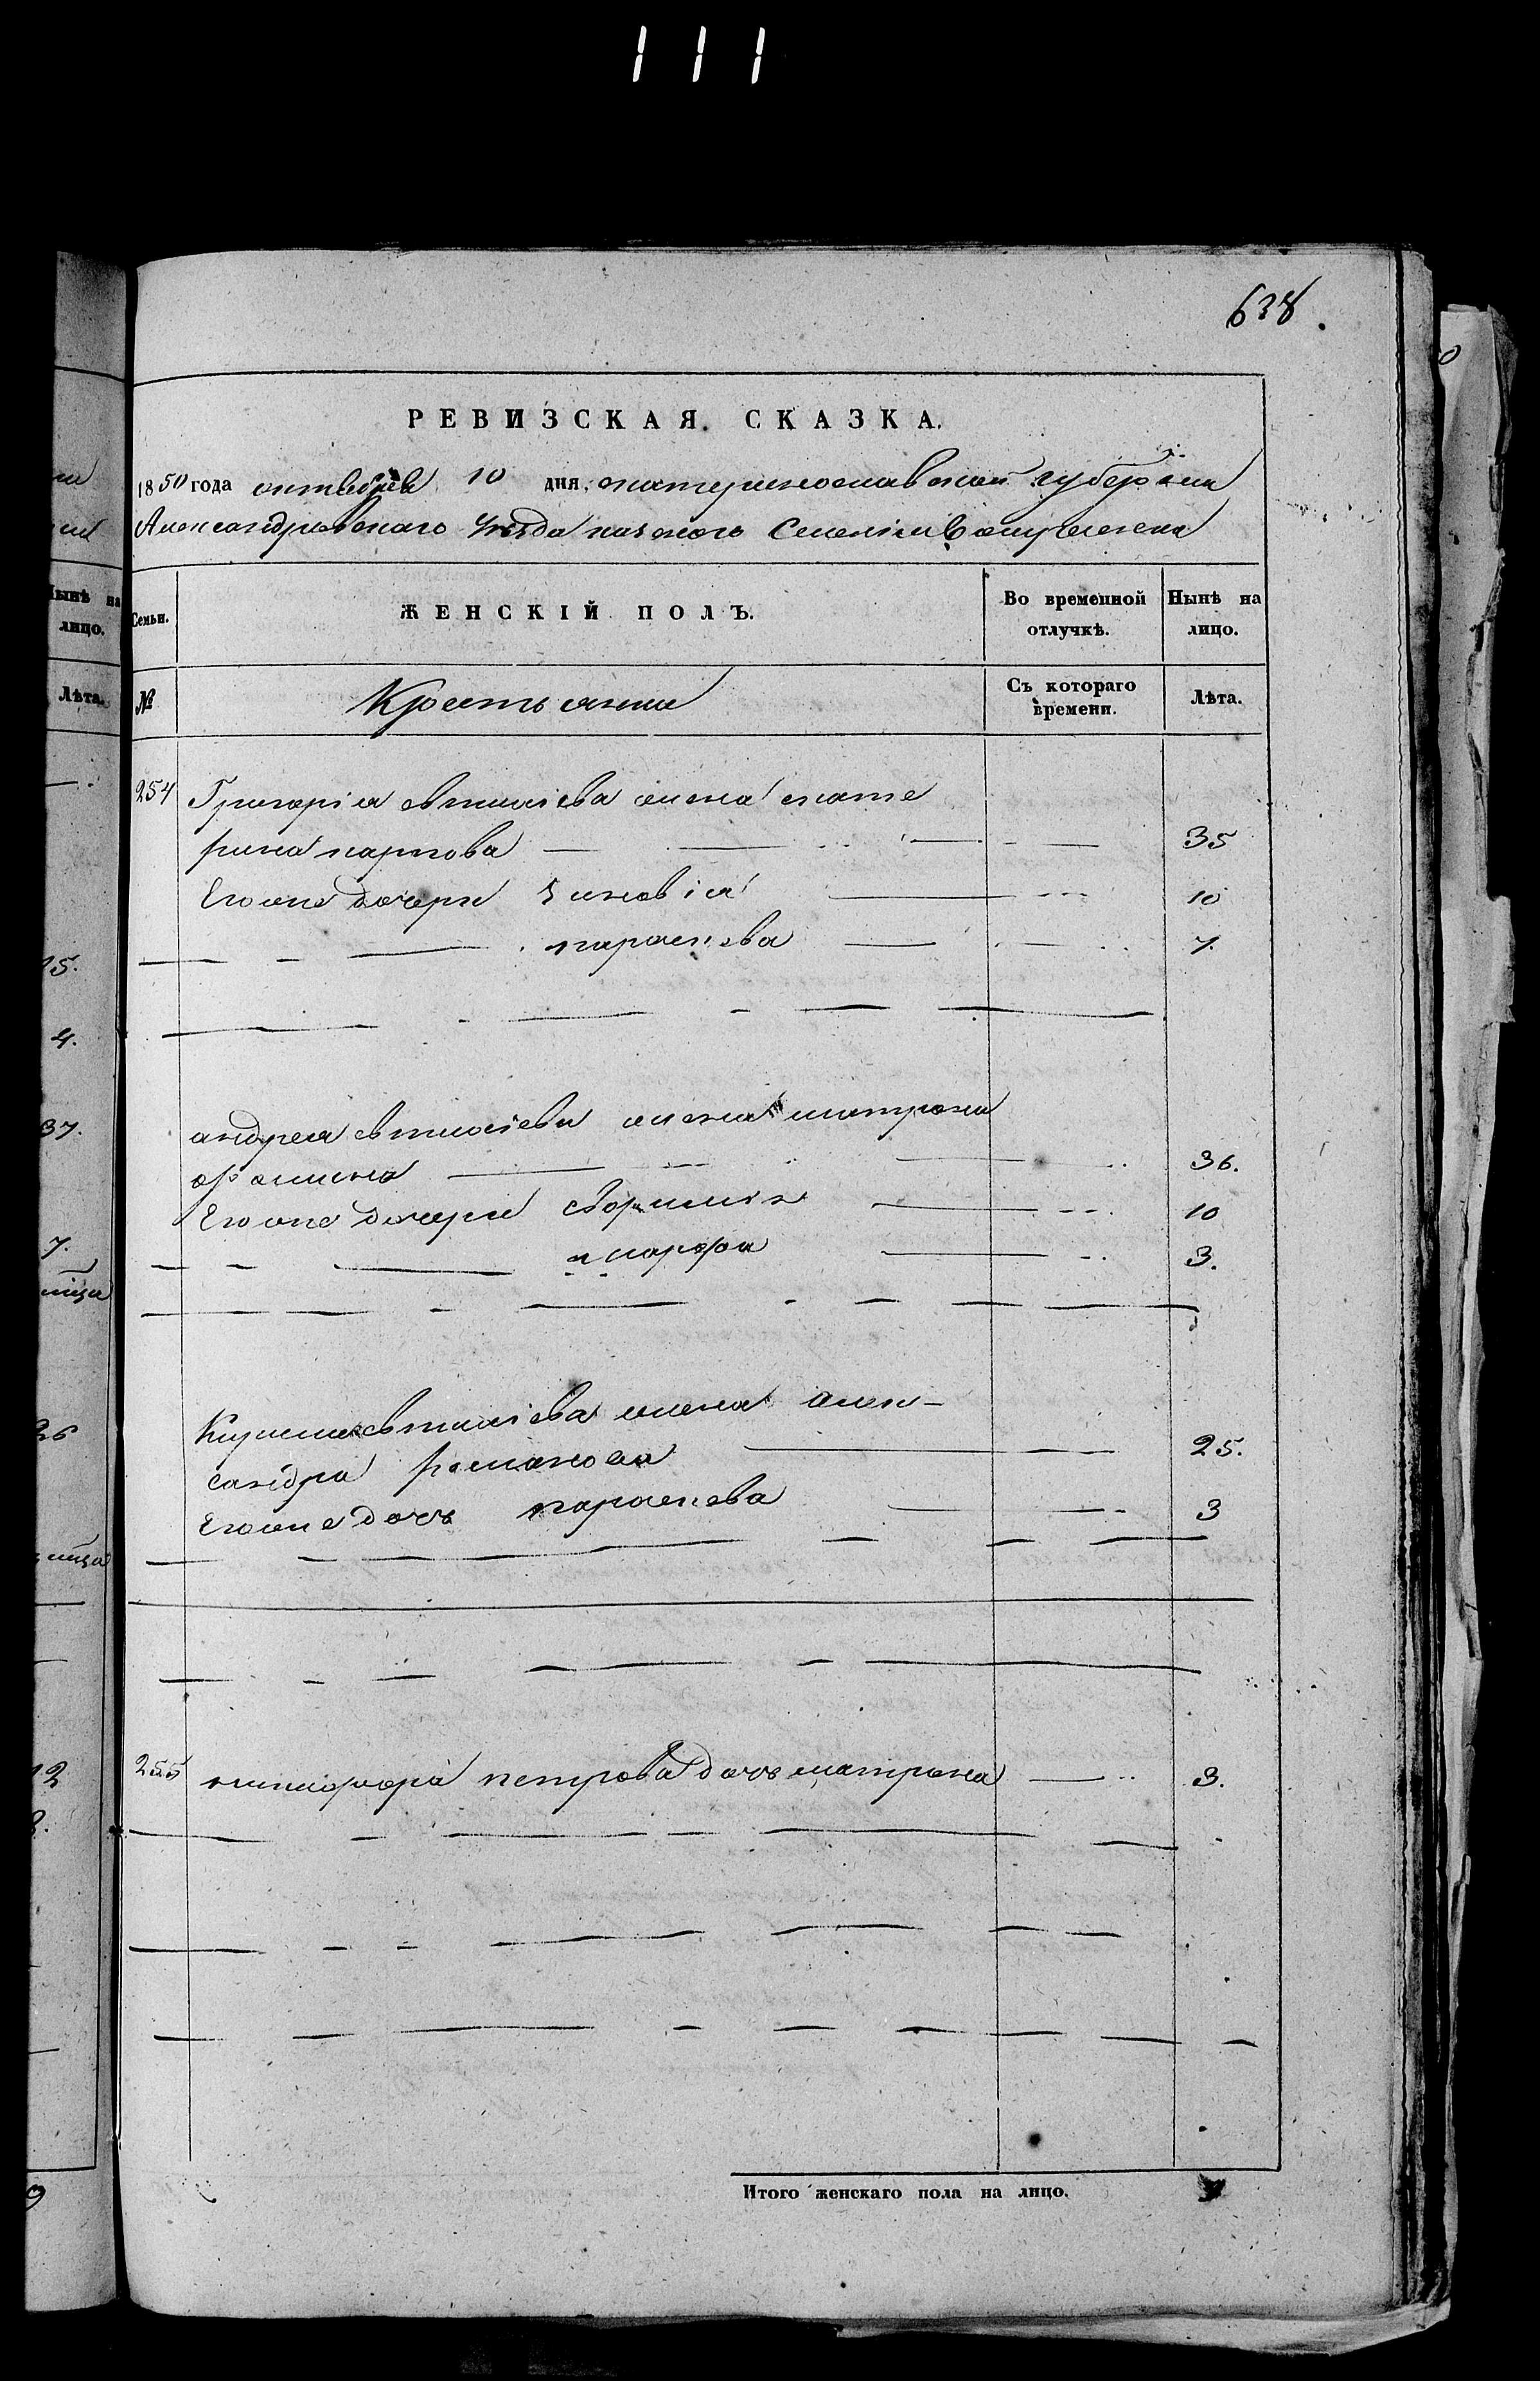 111
638.
РЕВИЗСКАЯ СКАЗКА.
1850 года октября 10 дня, екатеринославской губерніи
Александровскаго Уезда казеного Селенія
Семьи. ЖЕНСКІЙ ПОЛЪ. Во временной отлучкѣ. Нынѣ на лицо.
№ Крестьянки Съ котораго времени. Лѣта.
254 Григорія евтихіева жена екате
рина карпова — 35
Егоже дочери Зиновія — 10
параскева — 7.
андрея евтихіева жена матрона
36.
Егоже дочери — 10
марфа — 3.
Кирила евтихіева жена алек-
сандра романова — 25.
Егоже дочь параскева — 3
255 никифора петрова дочь матрона — 3.
Итого женскаго пола на лицо. 9
Нынѣ на лицо.
Лѣта.
15.
4.
37.
7.
26
12